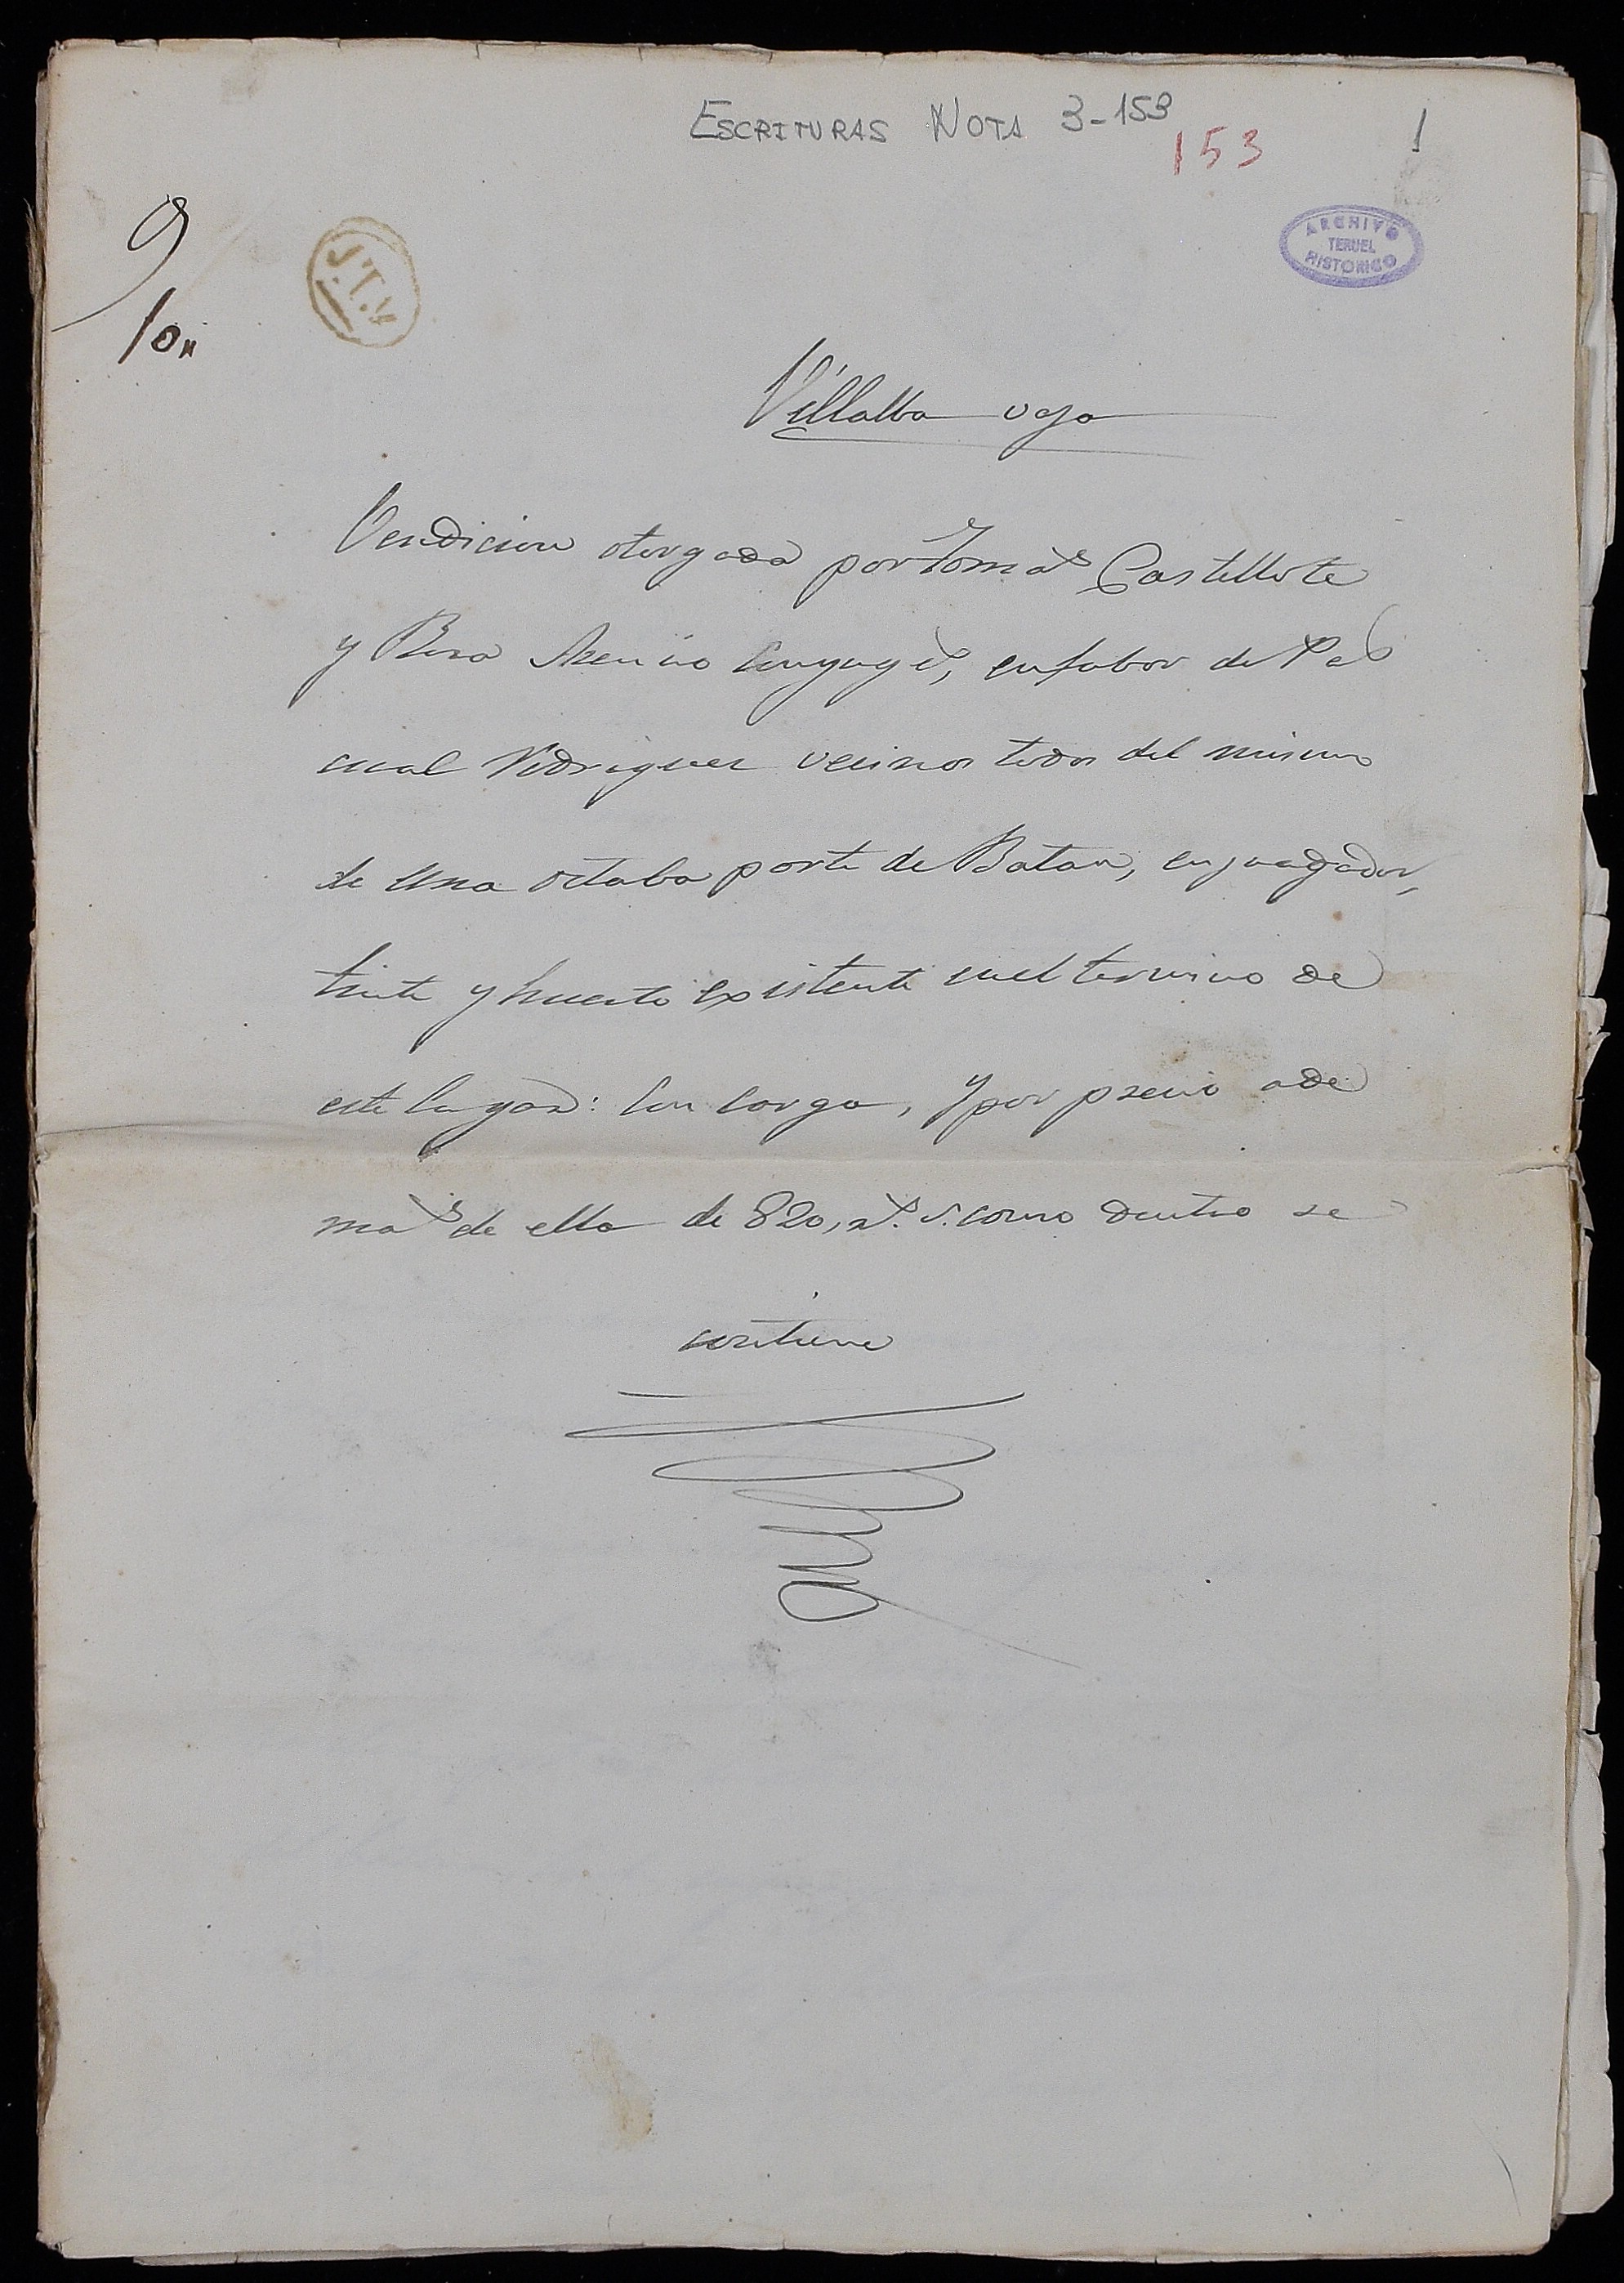 ESCRITURAS NOTA 3-153
153
1
9
10
J.T.V.
ARCHIVO
TERUEL
HISTORICO
Villalba vaja
Vendicion otorgada por Tomas Castellote
y Rosa Asensio Conyuges, enfabor de Pas
cual Rodriguez vecinos todos del mismo
de una octaba parte de Batan, enjuagador,
tinte y huerto existente enel termino de
este Lugar: Con carga, y por precio ade
mas de ella de 820, rs. v. como dentro se
contiene